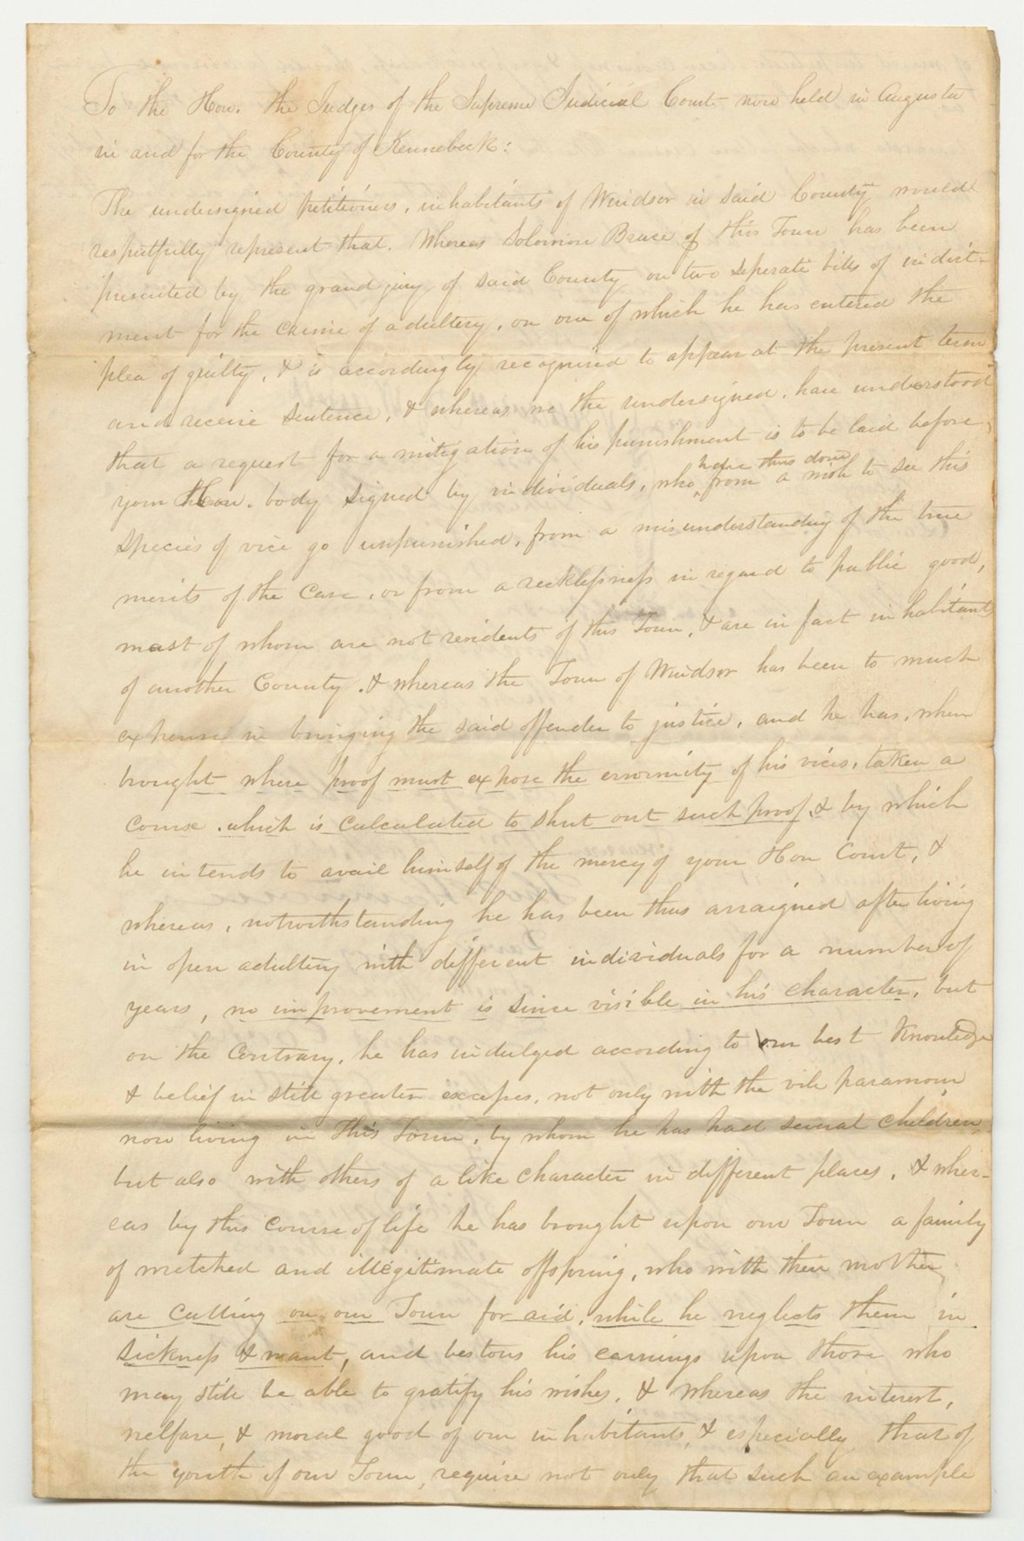 To the Hon. the Judges of the Supreme Judicial Court now held in Augusta
in and for the County of Kennebeck:
The undersigned petitioners, inhabitants of Windsor in said County would
respectfully represent that. Whereas Solomon Bruce of this Town has been
presented by the grand jury of said County on two seperate bills of indict-
ment for the crime of adultery, on one of which he has entered the
plea of guilty, & is accordingly recognized to appear at the present term
and receive sentence, & whereas we the undersigned, have understood
that a request for a mitigation of his punishment is to be laid before
your Hon. body signed by individuals, who have this done from a wish to see this
species of vice go unpunished, from a misunderstanding of the true
merits of the case, or from a recklessness in regard to public good,
most of whom are not residents of this Town, & are in fact inhabitants
of another County. & whereas the Town of Windsor has been to much
expense in bringing the said offender to justice, and he has, when
brought where proof must expose the enormity of his vices, taken a
course, which is calculated to shut out such proof, & by which
he intends to avail himself of the mercy of your Hon Court, &
whereas, notwithstanding he has been thus arraigned after living
in open adultery with different individuals for a number of
years, no improvement is since visible in his character, but
on the contrary, he has indulged according to our best knowledge
& belief in still greater excesses, not only with the vile paramour
now living in this Town, by whom he has had several children
but also with others of a like character in different places, & wher-
eas by this course of life he has brought upon our Town a family
of wretched and illegitimate offspring, who with their mother,
are calling on our Town for aid, while he neglects them in
sickness & want, and bestows his earnings upon those who
may still be able to gratify his wishes, & whereas the interest,
welfare, & moral good of our inhabitants, & especially that of
the youth of our Town, require not only that such an example